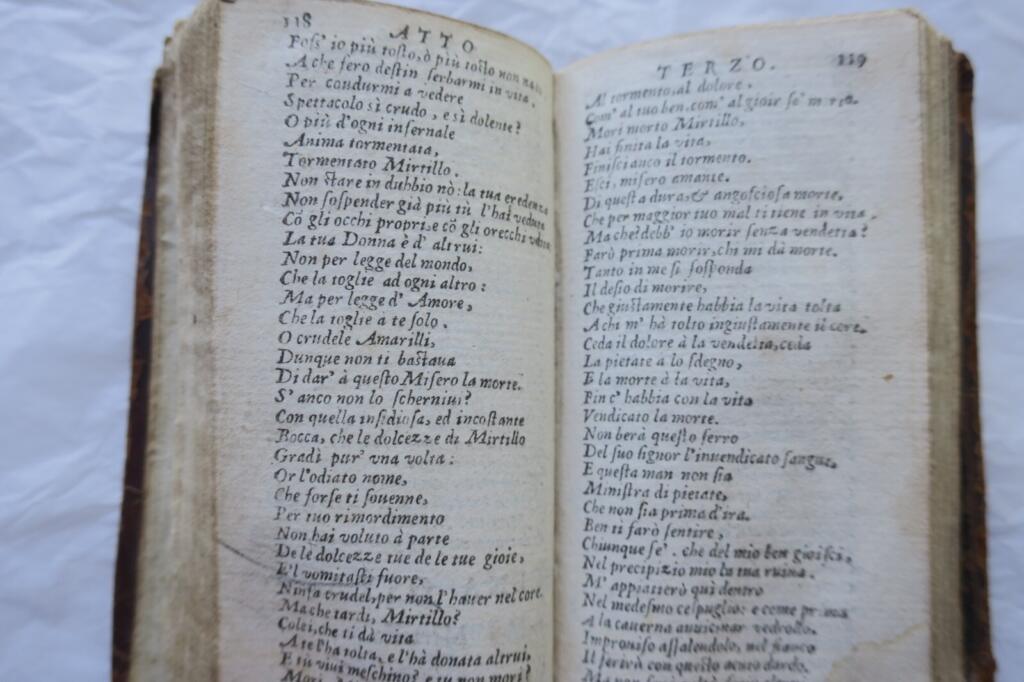 118
ATTO
Foſs' io più toſto, ò più toſto non
A che fero deſtin ſerbarmi in vita,
Per condurmi a vedere
Spettacolo sì crudo, e sì dolente?
O più d'ogni infernale
Anima tormentata,
Tormentato Mirtillo.
Non ſtare in dubbio nò: la tua credenza
Non ſoſpender già più tù l'hai veduta
Cō gli occhi propri, e cō gli orecchi
La tua Donna è d' altrui:
Non per legge del mondo,
Che la toglie ad ogni altro:
Ma per legge d' Amore,
Che la toglie à te ſolo.
O crudele Amarilli,
Dunque non ti baſtaua
Di dar' à queſto Miſero la morte.
S' anco non lo ſcherniui?
Con quella inſidioſa, ed incoſtante
Bocca, che le dolcezze di Mirtillo
Gradì pur' vna volta:
Or l'odiato nome,
Che forſe ti ſouenne,
Per tuo rimordimento
Non hai voluto à parte
De le dolcezze tue de le tue gioie,
E'l vomitaſti fuore,
Ninfa crudel, per non l'hauer nel core.
Ma che tardi, Mirtillo?
Colei, che ti dà vita
A te l'ha tolta, e l'hà donata altrui,
E tù viui meſchino? e tu non mori?
TERZO.
119
Al tormento, al dolore,
Com' al tuo ben, com' al gioir ſe'
Mori morto Mirtillo,
Hai finita la vita,
Finiſci anco il tormento.
Eſci, miſero amante.
Di queſta dura, & angoſcioſa morte,
Che per maggior tuo mal ti tiene in vita.
Ma che? debb' io morir ſenza vendetta?
Farò prima morir, chi mi dà morte.
Tanto in me ſi ſoſponda
Il deſio di morire,
Che giuſtamente habbia la vita tolta
A chi m' hà tolto ingiuſtamente il core.
Ceda il dolore à la vendetta, ceda
La pietate à lo ſdegno,
E la morte à la vita,
Fin c' habbia con la vita
Vendicato la morte.
Non berà queſto ferro
Del ſuo ſignor l'inuendicato ſangue,
E queſta man non ſia
Miniſtra di pietate,
Che non ſia prima d'ira.
Ben ti farò ſentire,
Chiunque ſe'. che del mio ben gioiſci,
Nel precipizio mio la tua ruina.
M' appiatterò quì dentro
Nel medeſmo ceſpuglio: e come prima
A la cauerna auuicinar vedrollo,
Improuiſo aſſalendolo, nel fianco
Il ferirà con queſto acuto dardo.
Ma non